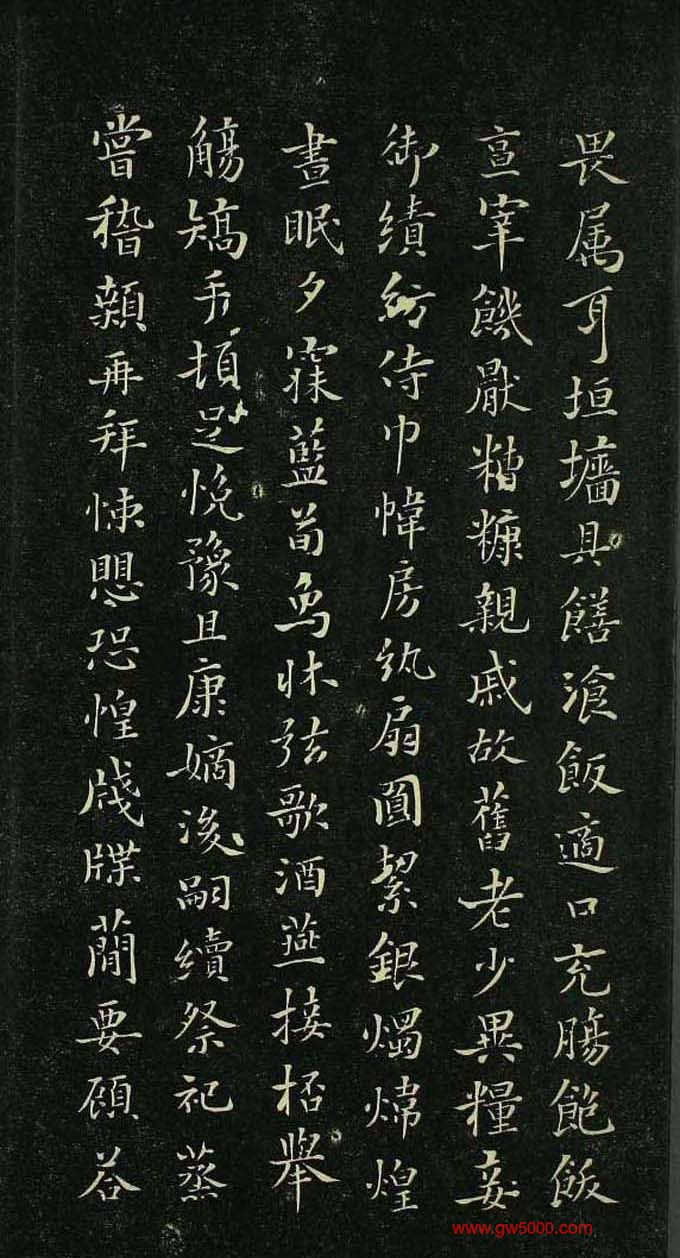 畏属耳垣墻具饍湌飯適口充膓飽飫
亯宰饑猒糟糠親戚故舊老少異糧妾
御績紡侍巾幃房紈扇圓絜銀燭煒煌
晝眠夕寐藍荀象牀弦歌酒燕接桮舉
觴矯手頓足悅豫且康嫡後嗣續祭祀蒸
嘗稽顙再拜悚懼恐惶牋牒蕳要顧荅
www.gw5000.com